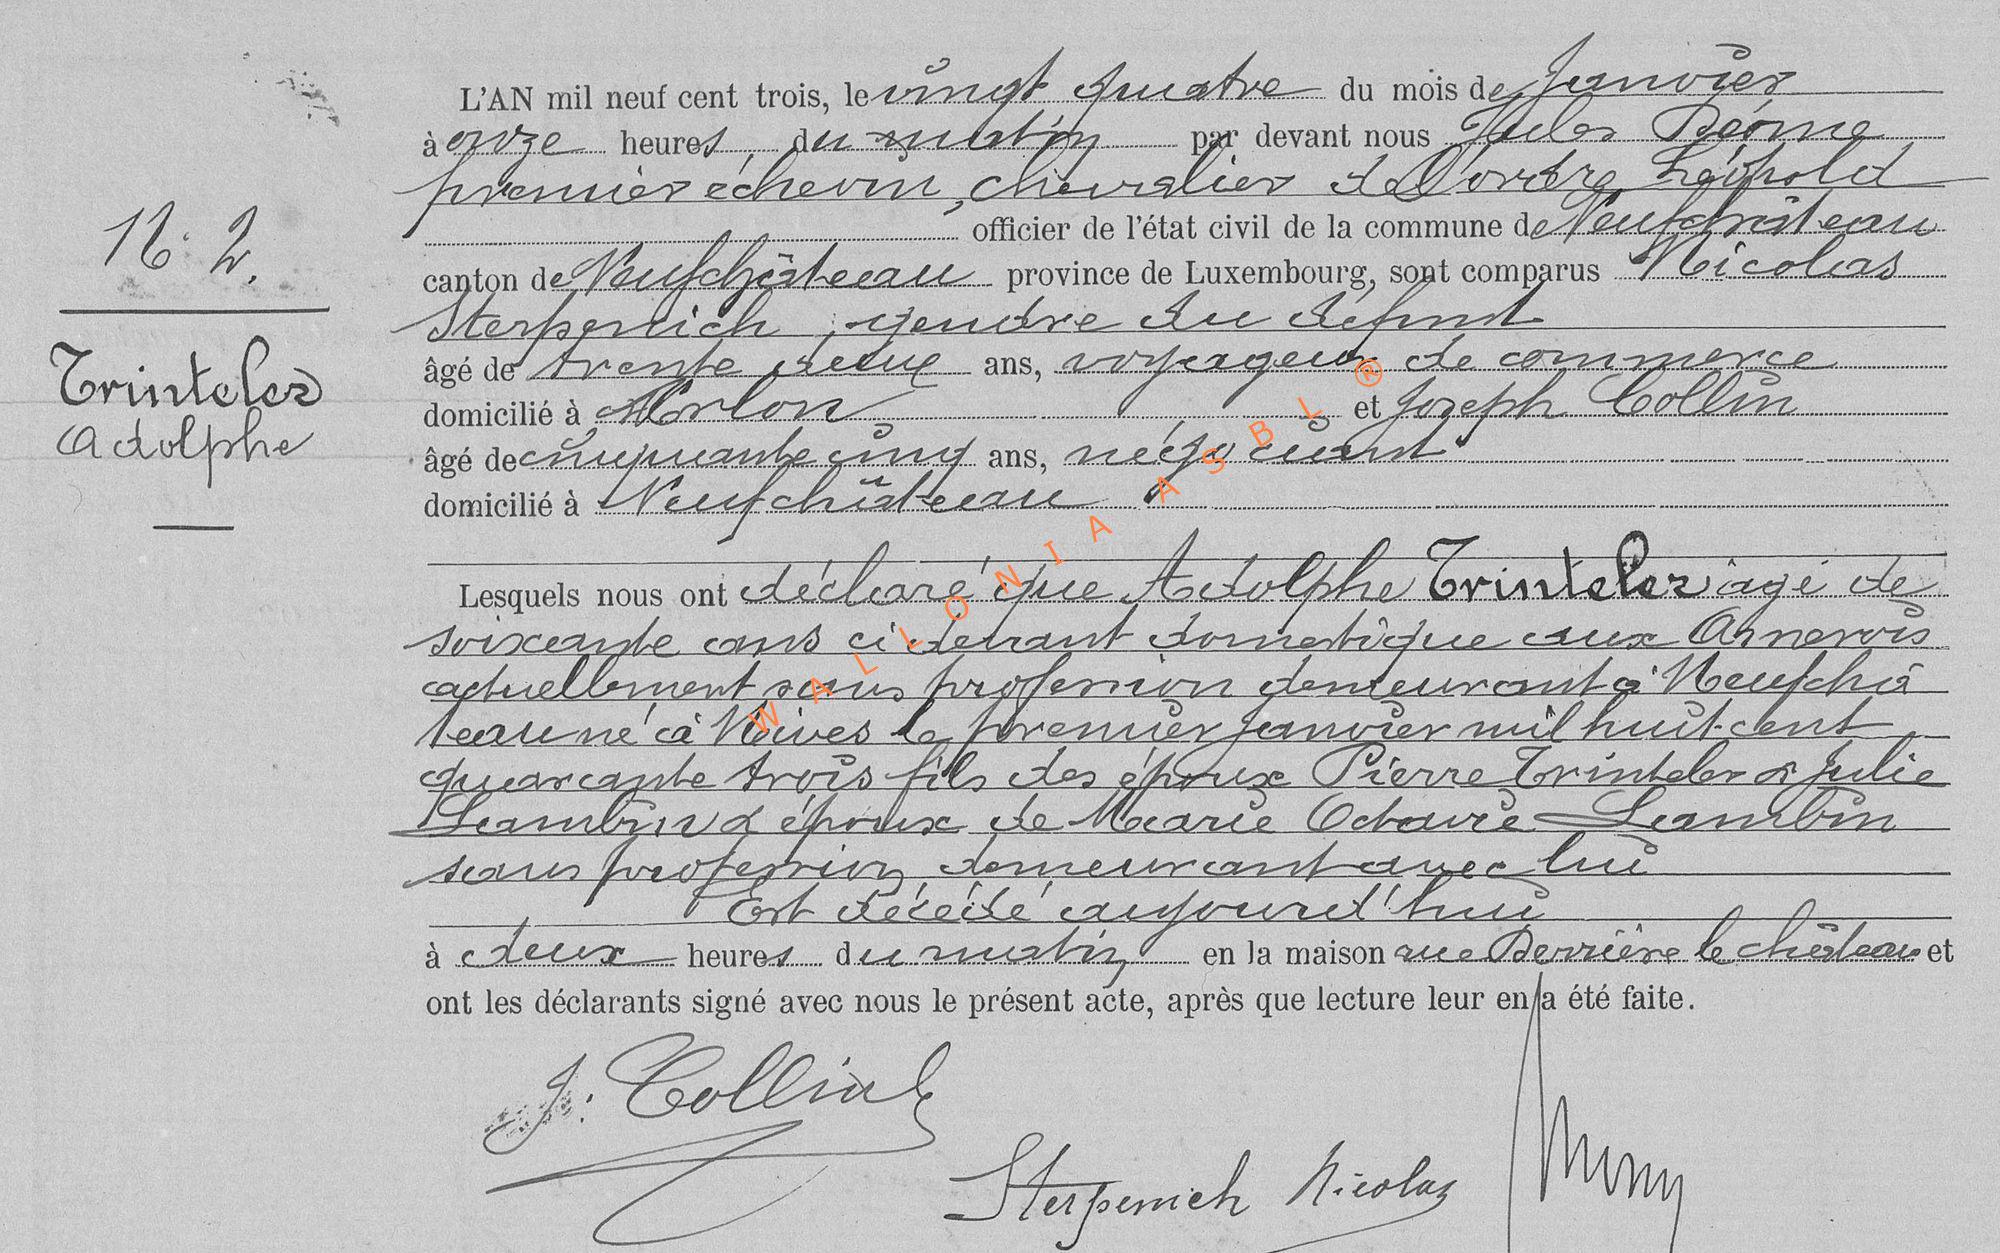 N. 2.
Trinteler
Adolphe
L'AN mil neuf cent trois, le vingt quatre du mois de Janvier
à onze heures du matin par devant nous Jules
premier échevin, chevalier de l'ordre Léopold
officier de l'état civil de la commune de Neufchâteau
canton de Neufchâteau province de Luxembourg, sont comparus Nicolas
Sterpenich, gendre du défunt
âgé de trente deux ans, voyageur de commerce
domicilié à Arlon et Joseph Collin
âgé de cinquante cinq ans, négociant
domicilié à Neufchâteau
Lesquels nous ont déclaré que Adolphe Trinteler âgé de
soixante ans ci devant domestique aux
actuellement sans profession demeurant à Neufchâ
teau né à Nives le premier Janvier mil huit cent
quarante trois fils des époux Pierre Trinteler & Julie
Lambin & époux de Marie Octavie Lambin
sans profession demeurant avec lui
Est décédé aujourd'hui
à deux heures du matin en la maison rue Derrière le château et
ont les déclarants signé avec nous le présent acte, après que lecture leur en a été faite.
J. Collin
Sterpenich Nicolas
WALLONIA ASBL ®